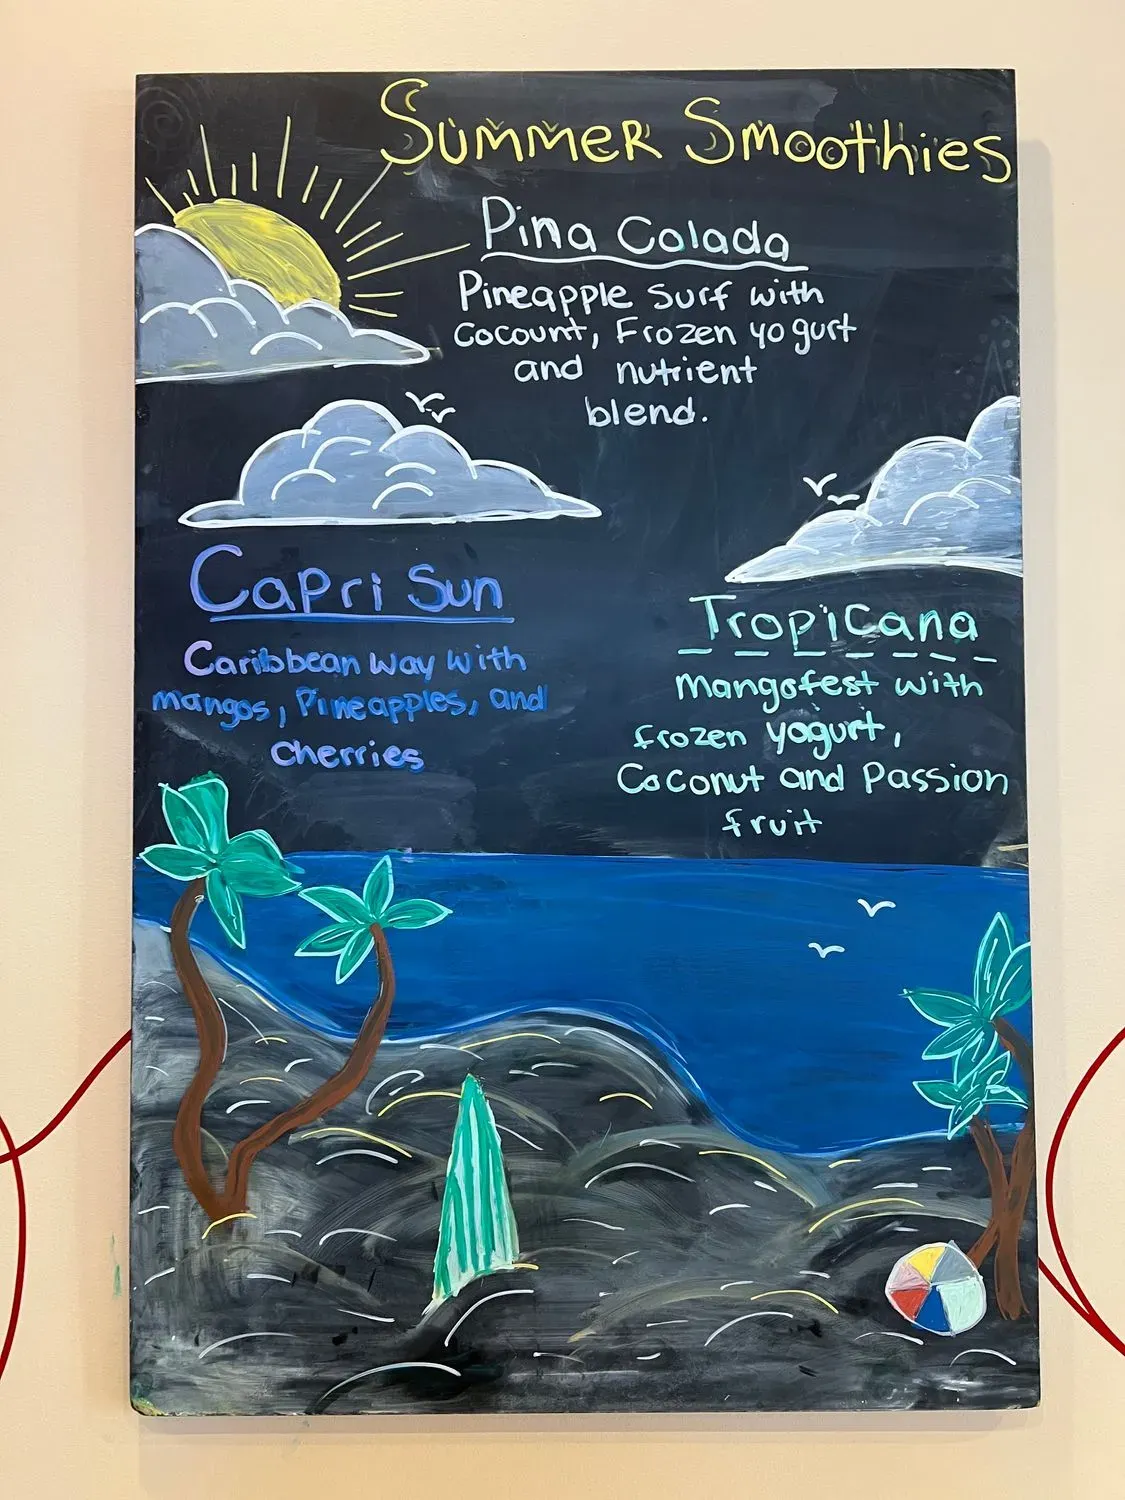 Summer Smoothies
Pina Colada
Pineapple Surf with
Cocount, Frozen yogurt
and nutrient
blend.
Capri Sun
Caribbean Way with
mangos, Pineapples, and
Cherries
Tropicana
Mangofest with
frozen yogurt,
Coconut and Passion
fruit